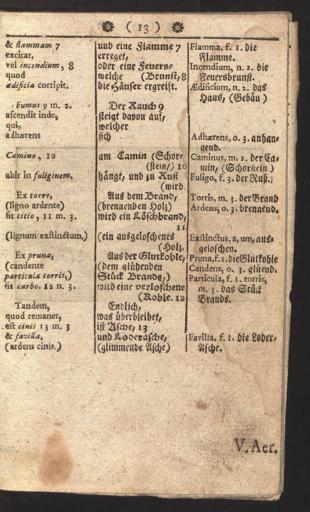 ( 13 )
& flammam 7
excitat,
vel incendium, 8
quod
ædificia corripit.
Fumus 9 m. 2.
ascendit inde,
qui,
adhærens
Camino, 10
abit in fuliginem.
Ex torre,
(ligno ardente)
fit titio, 11 m. 3.
(lignum exstinctum.)
Ex pruna,
(candente
particula torris,)
fit carbo. 12 n. 3.
Tandem,
quod remanet,
est cinis 13 m. 3
& favilla,
(ardens cinis.)
und eine Flamme 7
erreget,
oder eine Feuers-
welche (Brunst, 8
die Häuser ergreift.
Der Rauch 9
steigt davon auf,
welcher
sich
am Camin (Schor-
(stein,) 10
hängt, und zu Ruß
(wird.
Aus dem Brand,
(brenenden Holz)
wird ein Löschbrand,
11
(ein ausgeloschenes
(Holz.
Aus der Glutkohle,
(dem glühenden
Stück Brands,)
wird eine verloschene
(Kohle. 12
Endlich,
was überbleibet,
ist Asche, 13
und Loderasche,
(glimmende Asche)
Flamma, f. 1. die
Flamme.
Incendium, n. 2. die
Feuersbrunst.
Ædificium, n. 2. das
Haus, (Gebäu)
Adhærens, o. 3. anhan-
gend.
Caminus, m. 2. der Ca-
min, (Schorstein)
Fuligo, f. 3. der Ruß.
Torris, m. 3. der Brand
Ardens, o. 3. brennend.
Exstinctus, a, um, aus-
geloschen.
Pruna, f. 1. die Glutkohle
Candens, o. 3. glüend.
Particula, f. 1. torris,
m. 3. das Stück
Brands.
Favilla, f. 1. die Loder-
Asche.
V. Aer.